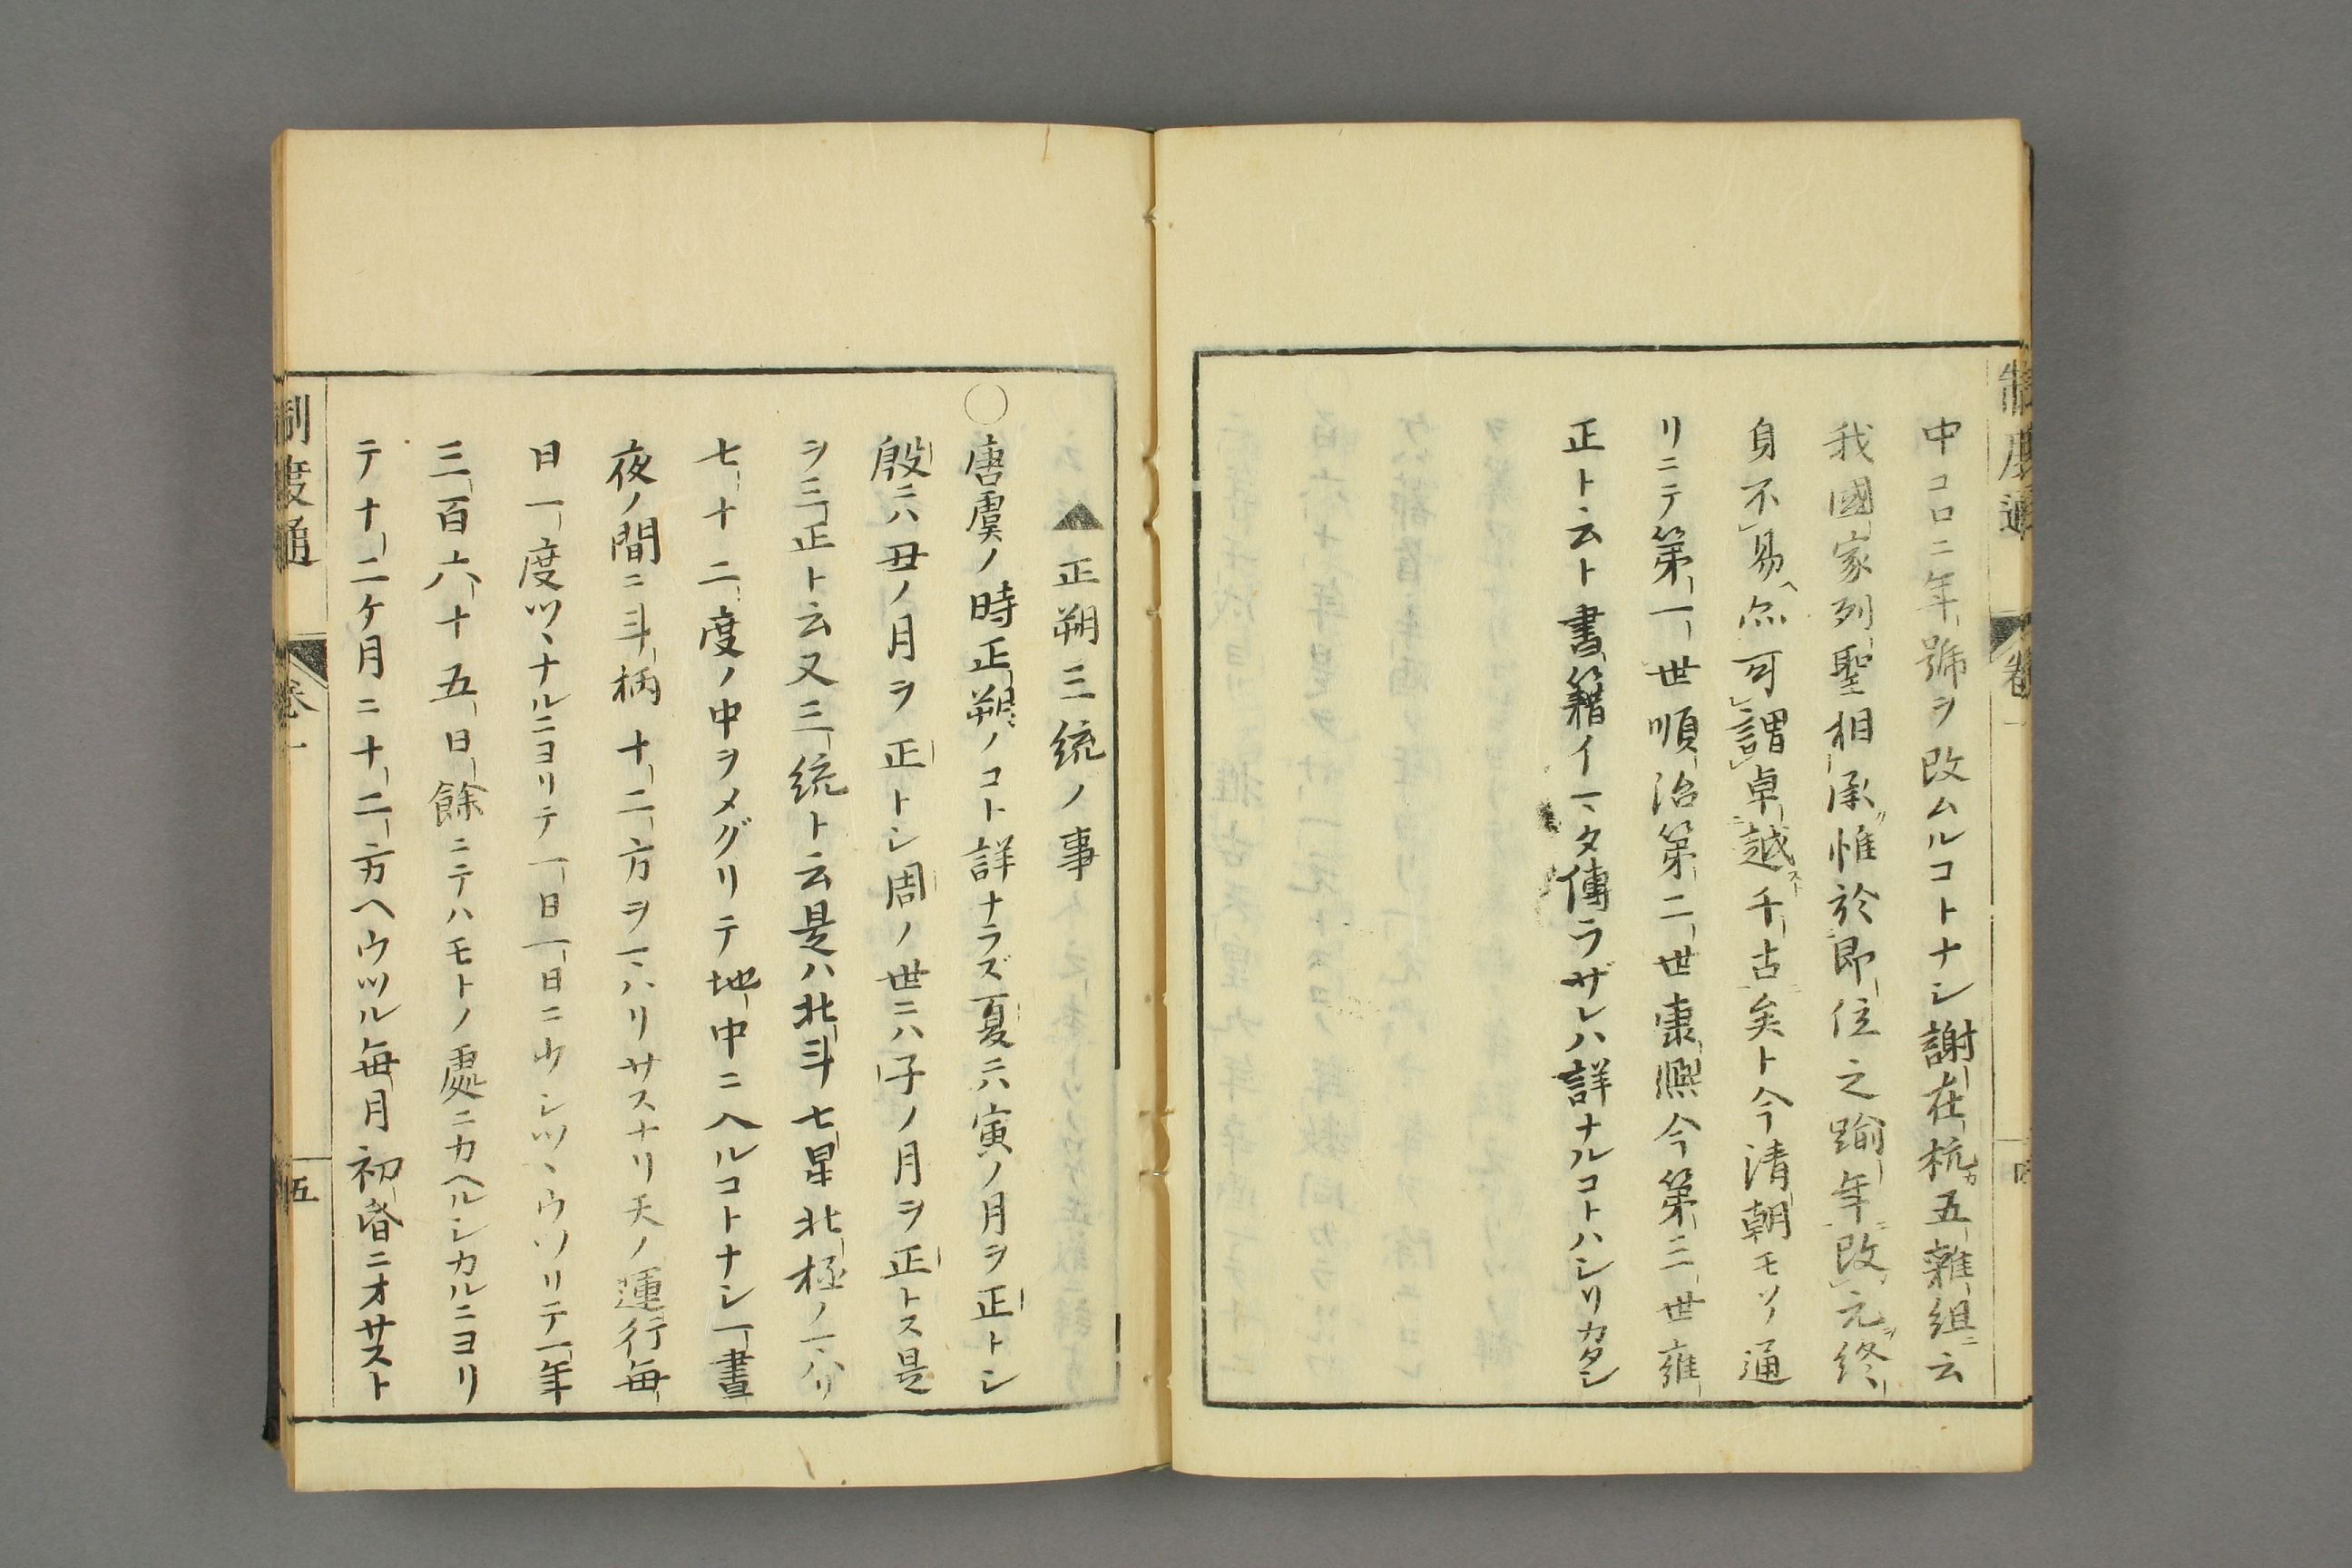 制度通
卷一
中コロニ年號ヲ改ムルコトナシ謝在杭五雜組ニ云
我國家列聖相承惟於即位之踰年改元終
身不易亦可謂卓越千古矣ト今清朝モソノ通
リニテ第一世順治第二世康熙今第三世雍
正ト云ト書籍イマタ傳ラザレハ詳ナルコトハシリカタシ
▲正朔三統ノ事
○唐虞ノ時正朔ノコト詳ナラズ夏ニハ寅ノ月ヲ正トシ
殷ニハ丑ノ月ヲ正トシ周ノ世ニハ子ノ月ヲ正トス是
ヲ三正ト云又三統ト云是ハ北斗七星北極ノマハリ
七十二度ノ中ヲメグリテ地中ニ入ルコトナシ一晝
夜ノ間ニ斗柄十二方ヲマハリサスナリ天ノ運行毎
日一度ツヽナルニヨリテ一日一日ニ少シツヽウツリテ一年
三百六十五日餘ニテハモトノ處ニカヘルシカルニヨリ
テ十二ケ月ニ十二方ヘウツル毎月初昏ニオサスト
制度通
卷一
五